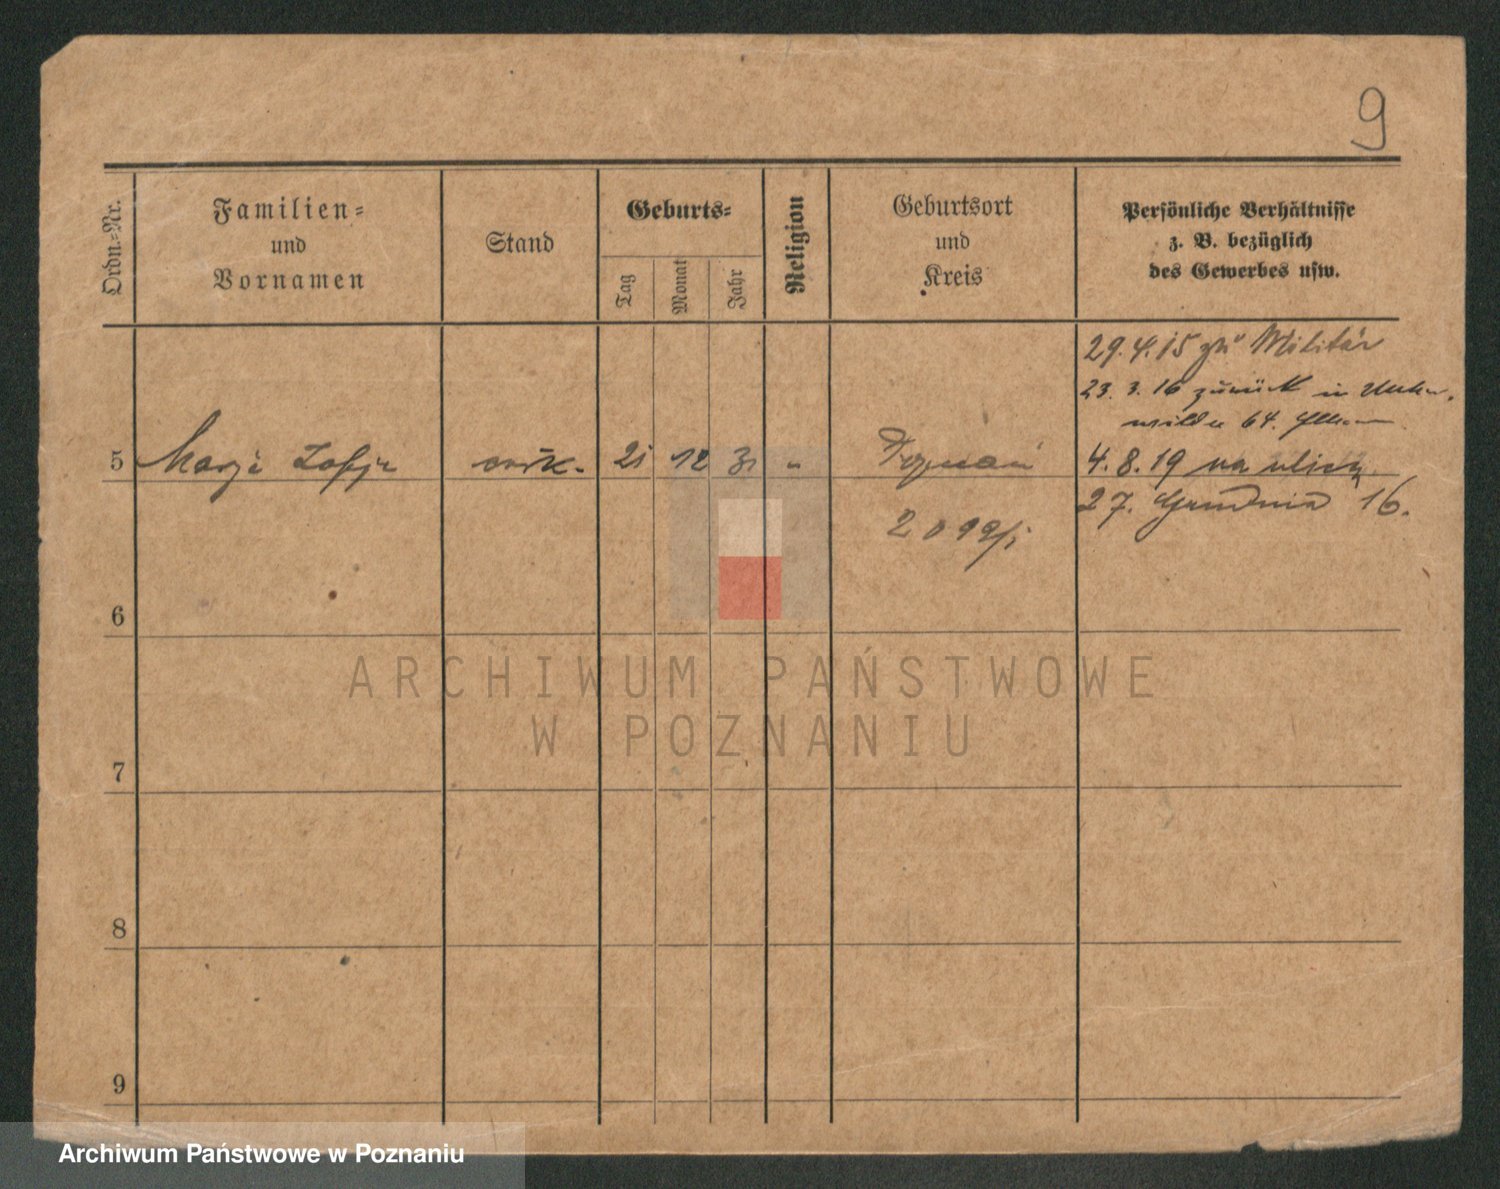 9
Ordn.-Nr.
Familien-
und
Vornamen
Stand
Geburts-
Tag
Monat
Jahr
Religion
Geburtsort
und
Kreis
Persönliche Verhältnisse
z. B. bezüglich
des Gewerbes usw.
29.4.15 zu Militär
23. 3. 16 zurück in
64.
5 Marja Zofja córk. 21 12 31 " Poznań 4.8.19 na ulicy
27. Grudnia 16.
6
7
8
9
ARCHIWUM PAŃSTWOWE
W POZNANIU
Archiwum Państwowe w Poznaniu